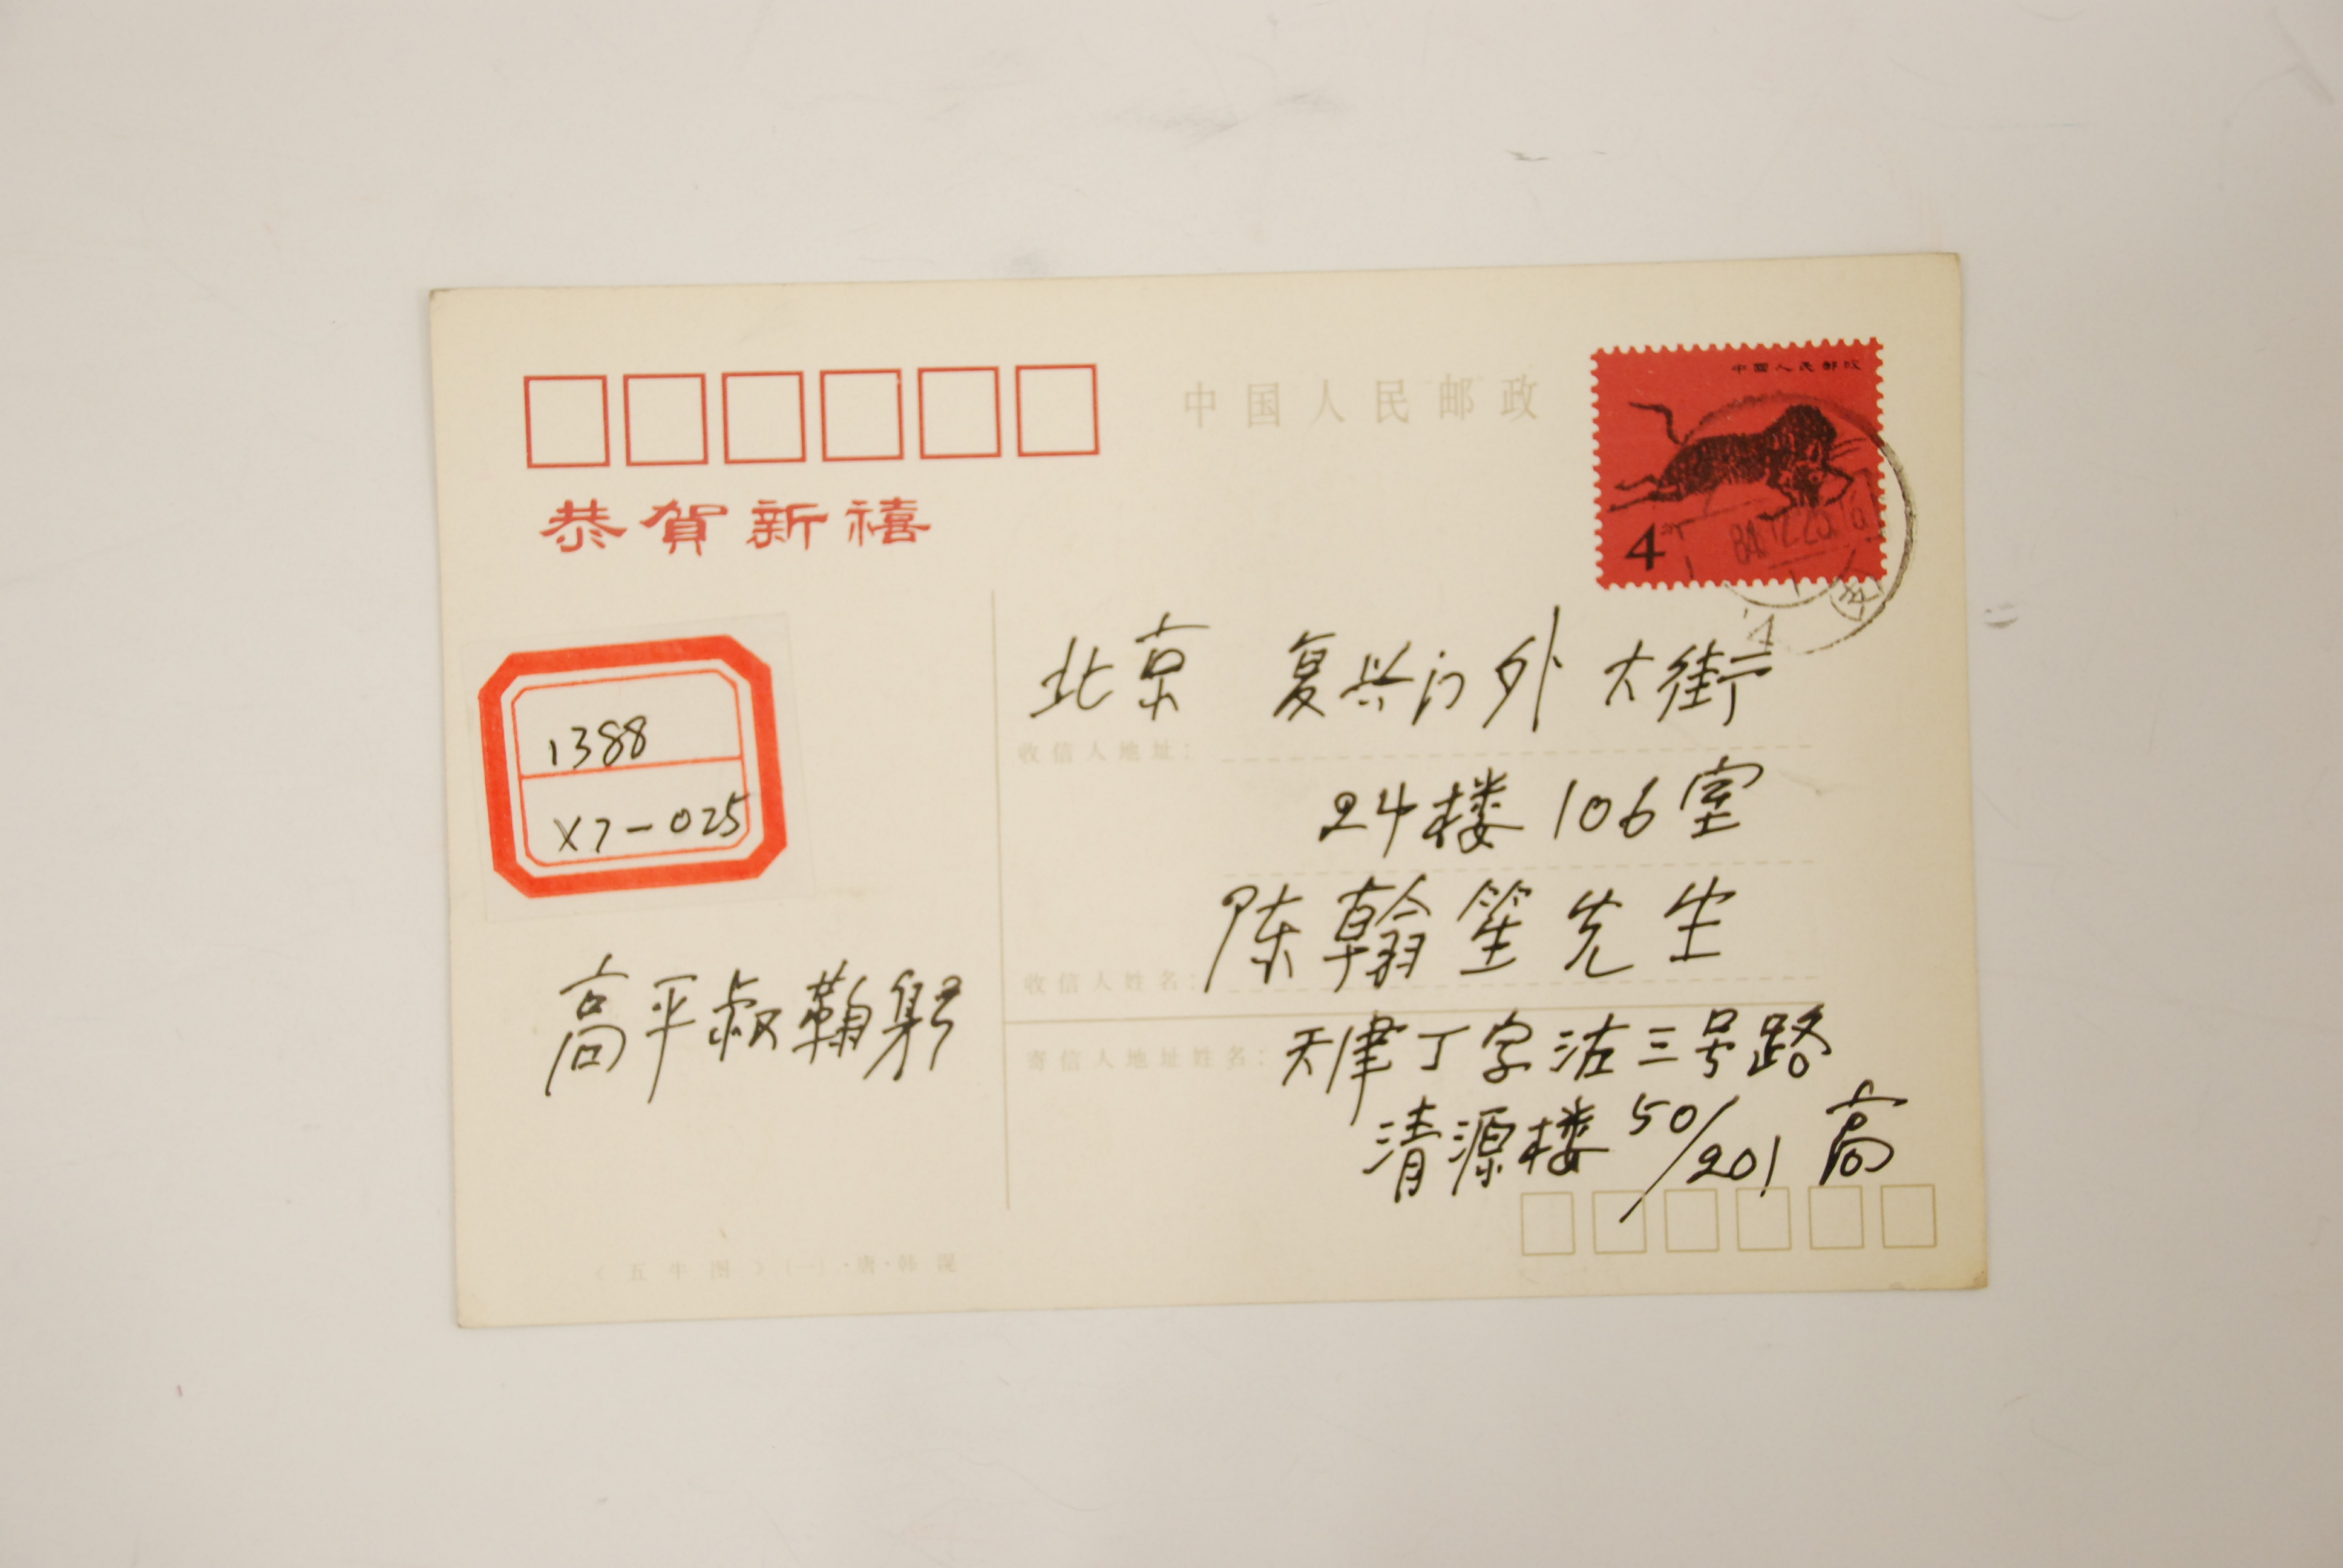 中国人民邮政
中国人民邮政
4分
恭賀新禧
1388
X7-025
高平叔鞠躬
北京 复兴门外大街
收信人地址：
24楼 106室
陈翰笙先生
收信人姓名：
寄信人地址姓名：
天津丁字沽三号路
清源楼 50/201 高
《五牛图》(一)·唐·韩滉